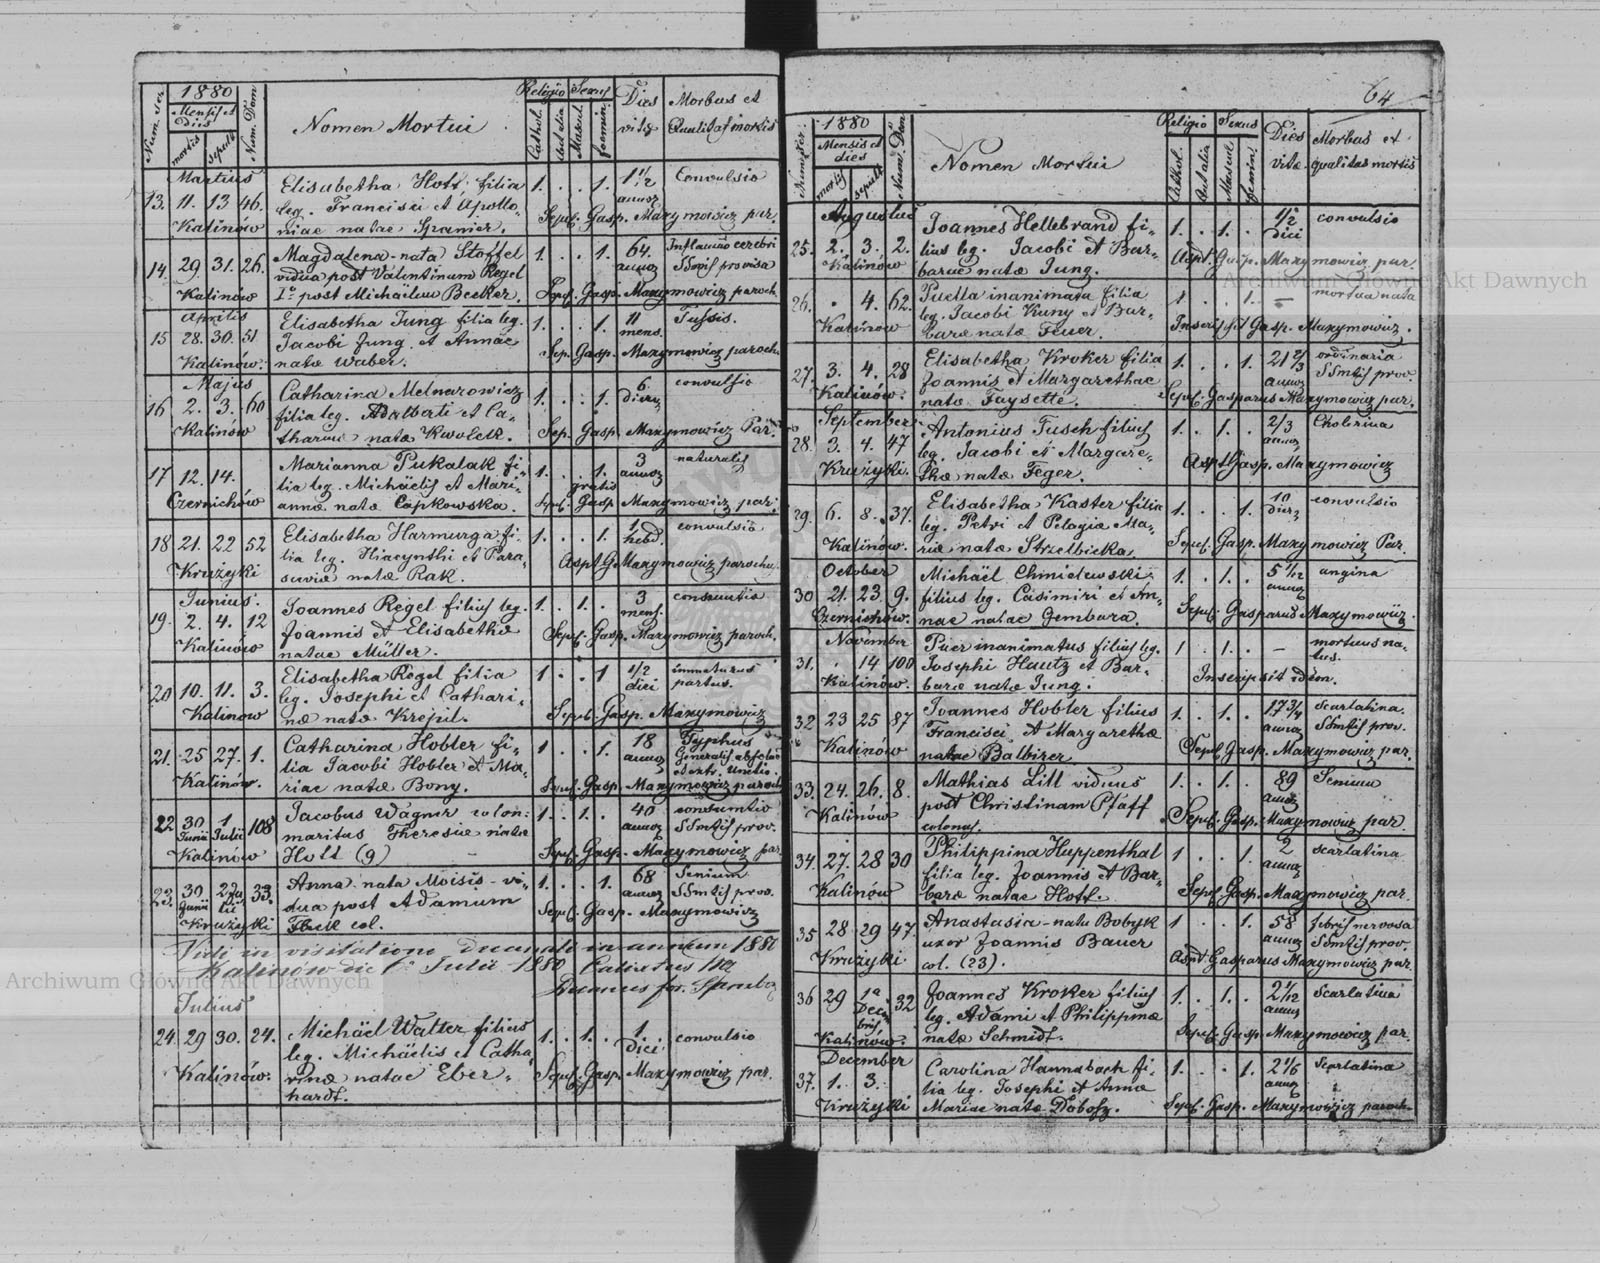 1880
Num. ser.
Mensis et
dies
mortis
sepult.
Num. Dom.
Nomen Mortui
Religio
Cathol.
Aut alia
Sexus
Mascul.
foemin.
Dies
vitæ
Morbus et
Qualitas mortis
Martius
13. 11. 13 46.
Kalinów
Elisabetha Hott filia
leg. Francisci et Apollo-
niae natae Spanier.
1. . . 1.
1 1/2
annor
Convulsio
Sepel. Gasp. Maxymowicz par.
14. 29 31. 26.
Kalinów
Magdalena nata Stoffel
vidua post Valentinum Regel
1º post Michäelem Becker.
1. . . 1.
64.
annor
Inflamatio cerebri
SSmis provisa
Sepel. Gasp. Maxymowicz paroch.
Aprilis
15 28. 30. 51
Kalinów.
Elisabetha Jung filia leg.
Jacobi Jung et Annae
natæ Waber.
1. . . 1.
11
mens.
Tussis.
Sep. Gasp. Maxymowicz paroch.
Majus
16 2. 3. 60
Kalinów
Catharina Melnarowicz
filia leg. Adalberti et Ca-
tharinae natæ Kwolek.
1. . . 1.
6.
dieru
convulsio
Sep. Gasp. Maxymowicz Par.
17 12. 14.
Czernichów
Marianna Pukalak fi-
lia leg. Michäelis et Mari-
annæ natæ Capkowska.
1. . . 1.
gratis
3
annor
naturalis
Sepel. Gasp. Maxymowicz par.
18 21. 22 52
Kruzyki
Elisabetha Harmurga fi-
lia leg. Hiacynthi et Para-
sceviæ natæ Rak.
1. . . 1.
1
hebd.
convulsio
Aspt G. Maxymowicz parochus
Junius.
19. 2. 4. 12
Kalinów
Joannes Regel filius leg.
Joannis et Elisabethæ
natae Müller.
1. . 1. .
3
mens.
consumtio
Sepel. Gasp. Maxymowicz paroch.
20 10. 11. 3.
Kalinow
Elisabetha Regel filia
leg. Josephi et Cathari-
næ natæ Krepil.
1. . . 1
1/2
diei
immaturus
partus.
Sepel. Gasp. Maxymowicz
21. 25 27. 1.
Kalinów.
Catharina Hobler fi-
lia Jacobi Hobler et Ma-
riae natæ Bony.
1 . . 1.
18
annor
Typhus
Generalis absolut.
et extr. Unctio
Sepel. Gasp. Maxymowicz paroch
22 30 1 108
Junii Julii
Kalinów
Jacobus Wagner colon:
maritus Theresiæ natæ
Hott (9)
1. . 1. .
40
annor
consumtio
SSmtis prov.
Sepel. Gasp. Maxymowicz par
23. 30 2 Ju 33.
Junii lii
Kruzyki
Anna nata Moisis vi-
dua post Adamum
col.
1. . . 1.
68
annor
Senium
SSmtis prov.
Sepel. Gasp. Maxymowicz
Vidi in visitatione decanali in annum 1880
Kalinów die Julii 1880
Decanus
Julius
24. 29 30. 24.
Kalinów.
Michäel Walter filius
leg. Michäelis et Catha-
rinæ natae Eber-
hardt.
1. . 1. .
1
diei
convulsio
Sepel. Gasp. Maxymowicz par.
64
1880
Num. ser.
Mensis et
dies
mortis
sepult.
Num. Dom.
Nomen Mortui
Religio
Cathol.
Aut alia
Sexus
Mascul
femin.
Dies
vitæ.
Morbus et
qualitas mortis
Augustus
25. 2. 3. 2.
Kalinów
Joannes Hellebrand fi-
lius leg. Jacobi et Bar-
barae natæ Jung.
1. . 1. .
1/2
diei
convulsio
Aspt. Gasp. Maxymowicz par.
26. . 4. 62.
Kalinów
Puella inanimata filia
leg. Jacobi Kuny et Bar-
baræ natæ Feuer.
1 . . 1.
—
mortua nata
Inscripsit Gasp. Maxymowicz.
27. 3. 4. 28
Kalinów.
Elisabetha Kroker filia
Joannis et Margarethae
natæ Faysette.
1. . . 1.
21 2/3
annor
ordinaria
SSmtis prov.
Sepel. Gasparus Maxymowicz par.
September
28. 3. 4. 47
Kruzyki.
Antonius Tusch filius
leg. Jacobi et Margare-
thæ natæ Feger.
1. . 1. .
2/3
anni
Cholerina
Aspt Gasp. Maxymowicz
29. 6. 8. 37.
Kalinów.
Elisabetha Kaster filia
leg. Petri et Pelagiæ Ma-
riæ natæ Strzelbicka.
1. . . 1.
10
dier.
convulsio
Sepel. Gasp. Maxymowicz Par.
October
30 21. 23. 9.
Czernichów.
Michäel Chmielewski
filius leg. Casimiri et An-
nae natae Gembara.
1. . 1. .
5 1/12
annor
angina
Sepel. Gasparus Maxymowicz.
November
31. . 14 100
Kalinów.
Puer inanimatus filius leg.
Josephi Hautz et Bar-
baræ natæ Jung.
1 . 1. .
—
mortuus na-
tus.
Inscripsit idem.
32 23 25 87
Kalinów
Joannes Hobler filius
Francisci et Margarethæ
natae Balbirer
1. . 1. .
17 3/4
annor
scarlatina.
SSmtis prov.
Sepel Gasp. Maxymowicz par.
33. 24. 26. 8.
Kalinów
Mathias Lill viduus
post Christinam Pfaff
colonus.
1. . 1. .
89
annor
Senium
Sepel. Gasp. Maxymowicz par.
34. 27. 28 30
Kalinów
Philippina Huppenthal
filia leg. Joannis et Bar-
baræ natae Hott.
1 . . 1.
2
annor
scarlatina
Sepel Gasp. Maxymowicz par.
35 28 29 47.
Kruzyki
Anastasia nata Bobyk
uxor Joannis Bauer
col. (23).
1 . . 1.
58
annor
febris nervosa
SSmtis prov.
Aspt Gasparus Maxymowicz par.
36 29 1a 32
Decem
bris
Kalinów.
Joannes Kroker filius
leg. Adami et Philippinæ
natæ Schmidt.
1. . 1. .
2 1/12
annor
Scarlatina
Sepel. Gasp. Maxymowicz par.
December
37. 1. 3.
Kruzyki
Carolina Hannabach fi-
lia leg. Josephi et Annæ
Mariae natæ Dobosz.
1. . . 1.
2 1/6
annor
Scarlatina
Sepel. Gasp. Maxymowicz paroch.
Archiwum Główne Akt Dawnych
Archiwum Główne Akt Dawnych